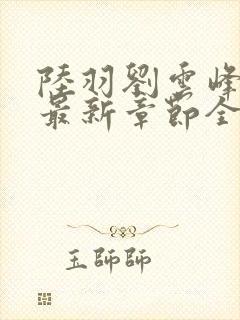 陸羽劉雲峰
最新章節全
玉師師